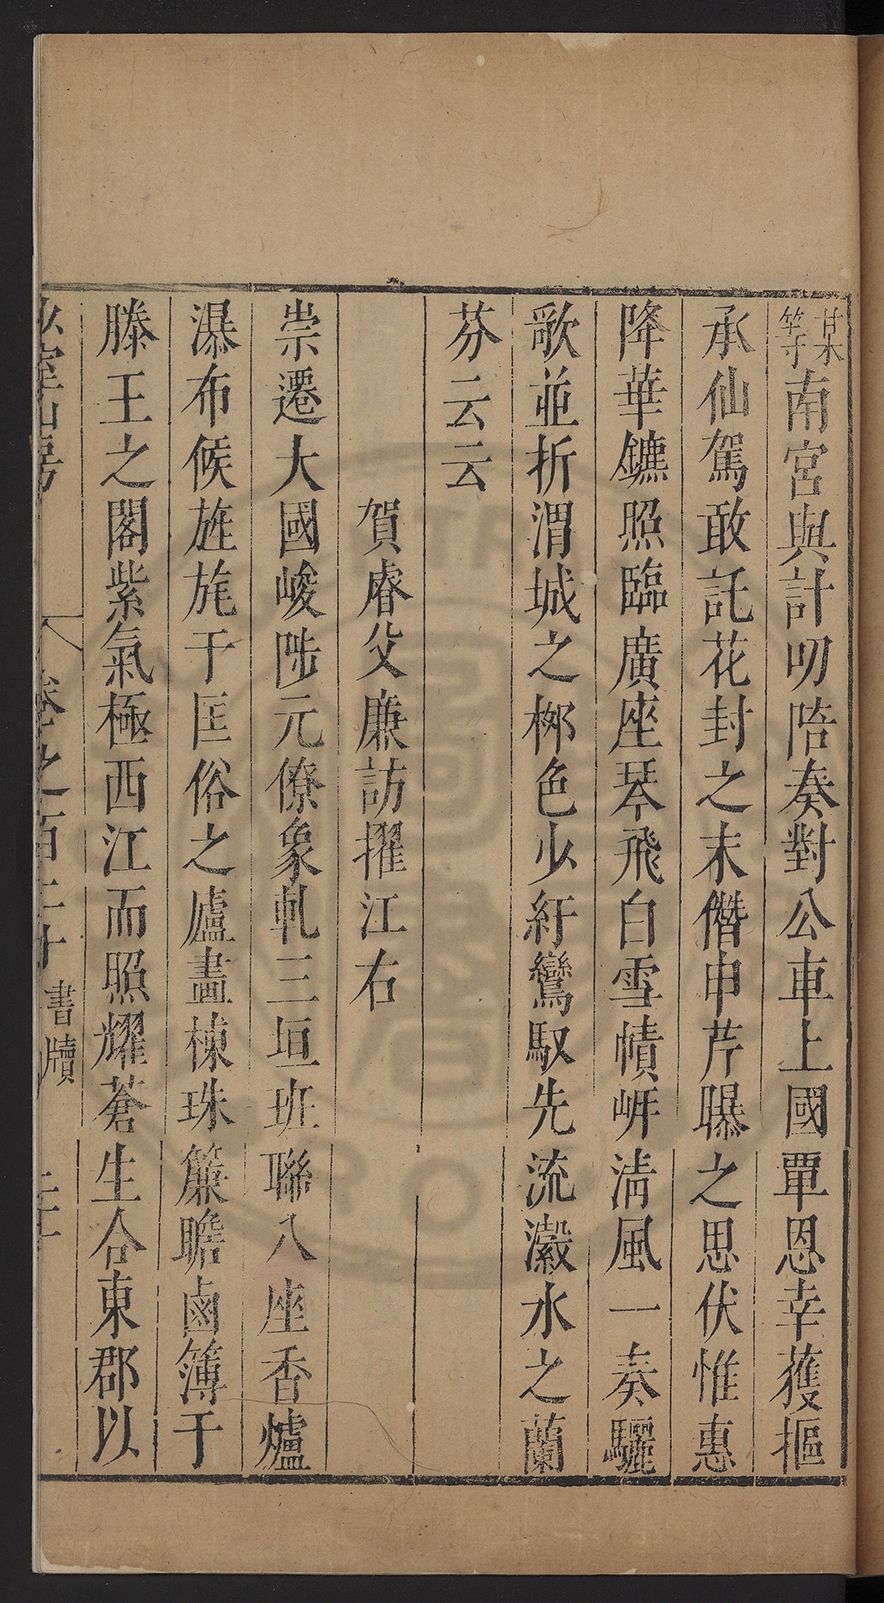 某等南宮與計叨陪奏對公車上國覃恩幸獲摳
承仙駕敢託花封之末僭申芹曝之思伏惟惠
降華鑣照臨廣座琴飛白雪幘岸清風一奏驪
歌並折渭城之桞色少紆鸞馭先流瀫水之蘭
芬云云
賀睿父廉訪擢江右
崇遷大國峻陟元僚象軋三垣班聯八座香爐
瀑布候旌旄于匡俗之廬畫棟珠簾瞻鹵簿于
滕王之閣紫氣極西江而照耀蒼生合東郡以
少室山房 卷之百二十 書牘